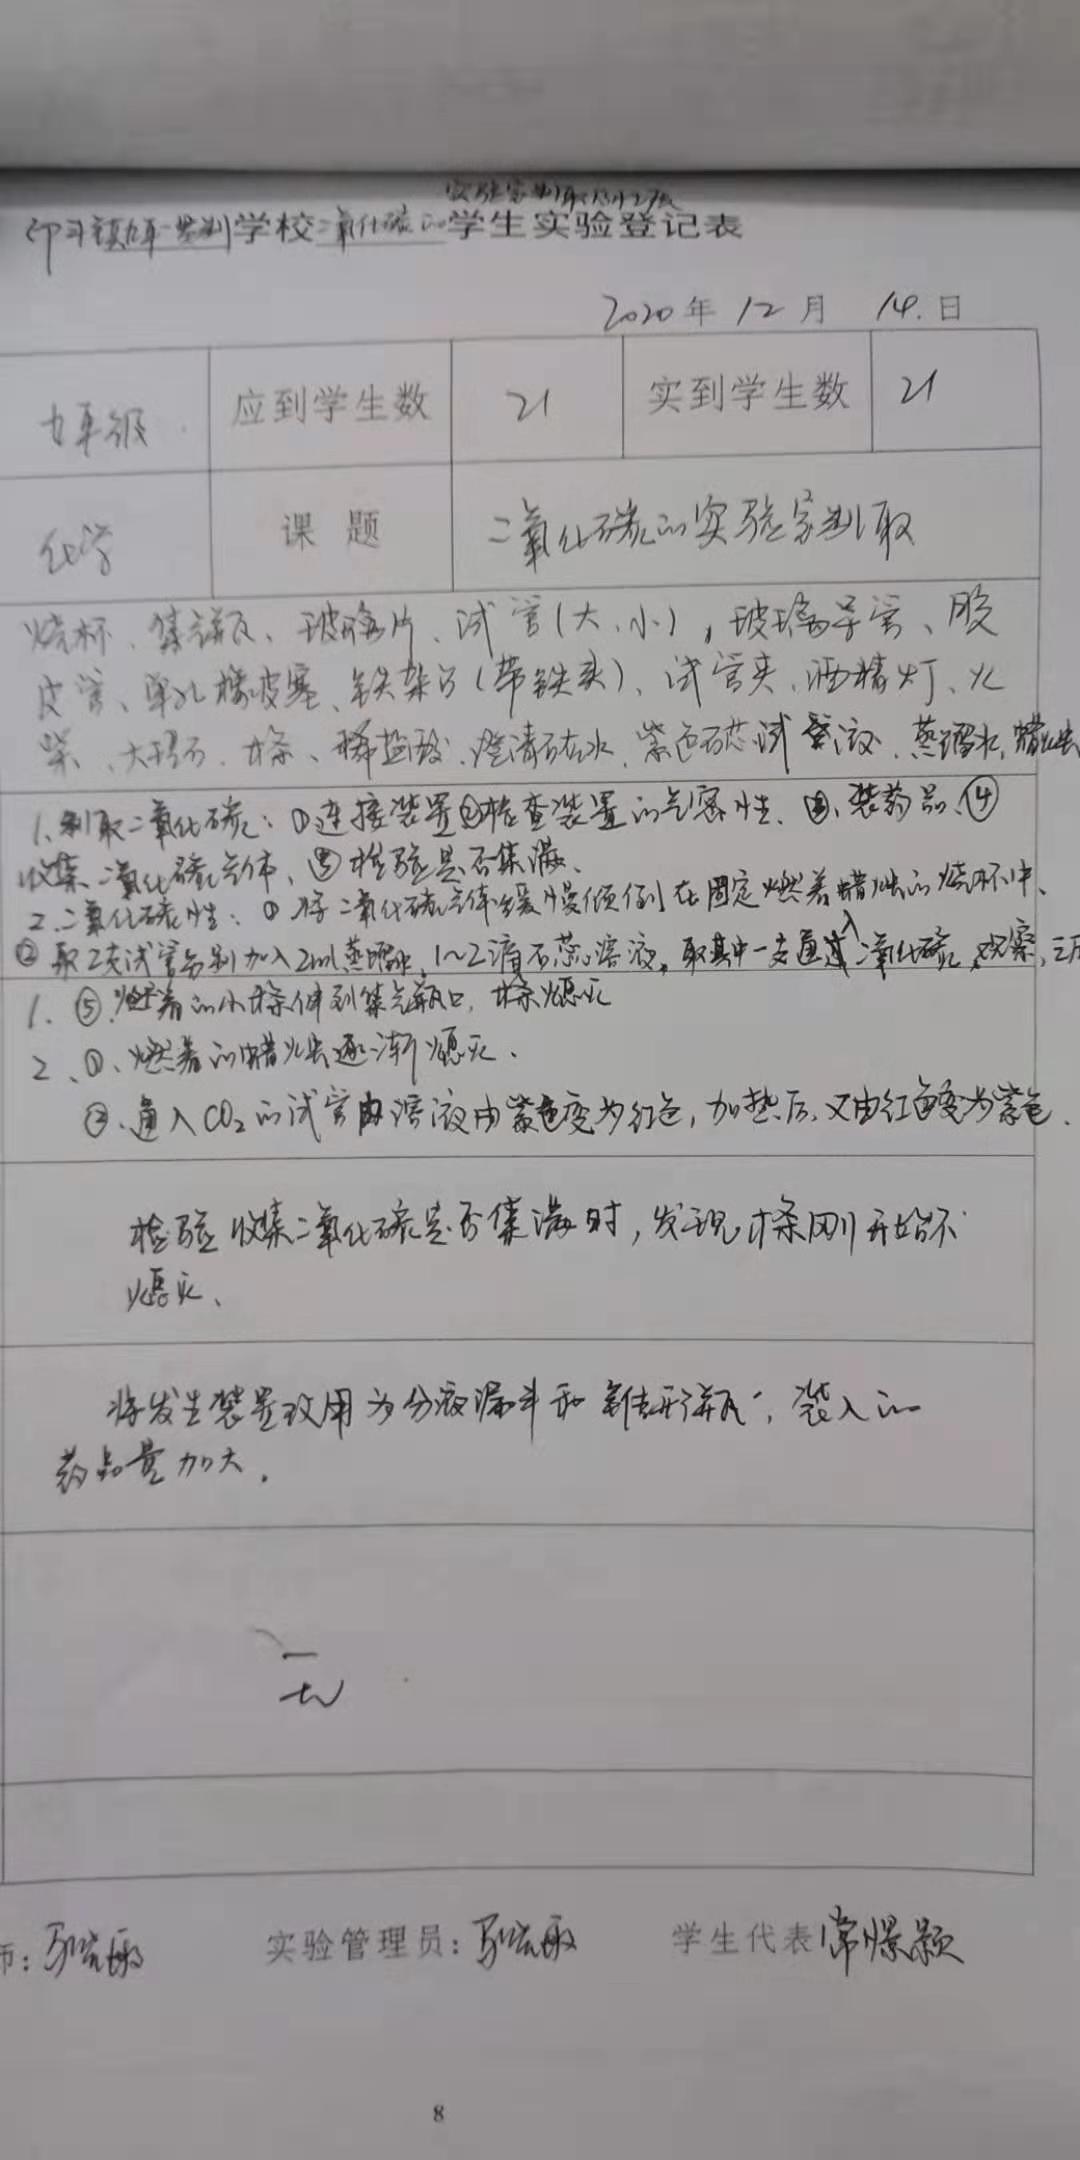 实验室制取与性质
印斗镇九年一贯制学校二氧化碳的学生实验登记表
2020年12月14.日
九年级 应到学生数 21 实到学生数 21
化学 课题 二氧化碳的实验室制取
烧杯、集气瓶、玻璃片、试管(大、小),玻璃导管、胶
皮管、单孔橡皮塞、铁架台(带铁夹)、试管夹、酒精灯、火
柴、大理石、木条、稀盐酸、澄清石灰水、紫色石蕊试液、蒸馏水,蜡烛
1.制取二氧化碳:①连接装置②检查装置的气密性、③、装药品、④
收集二氧化碳气体、⑤检验是否集满、
2.二氧化碳性:①将二氧化碳气体缓慢倾倒在固定燃着蜡烛的烧杯中、
②取2支试管分别加入2ml蒸馏水,1~2滴石蕊溶液,取其中一支通入二氧化碳,观察,
1.⑤.燃着的小木条伸到集气瓶口,木条熄灭
2、①、燃着的蜡烛逐渐熄灭.
②、通入CO₂的试管内溶液由紫色变为红色,加热后,又由红色变为紫色.
检验收集二氧化碳是否集满时,发现木条刚开始不
熄灭、
将发生装置改用为分液漏斗和锥形瓶;装入的
药品量加大.
无
师: 实验管理员: 学生代表
8